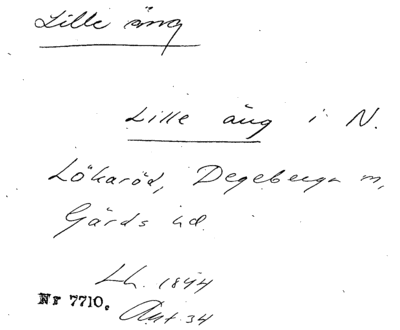 Lille äng
Lille äng i N.
Lökaröd, Degeberga m,
Gärds hd.
Lh. 1844
Nr 7710.
Ant. 34